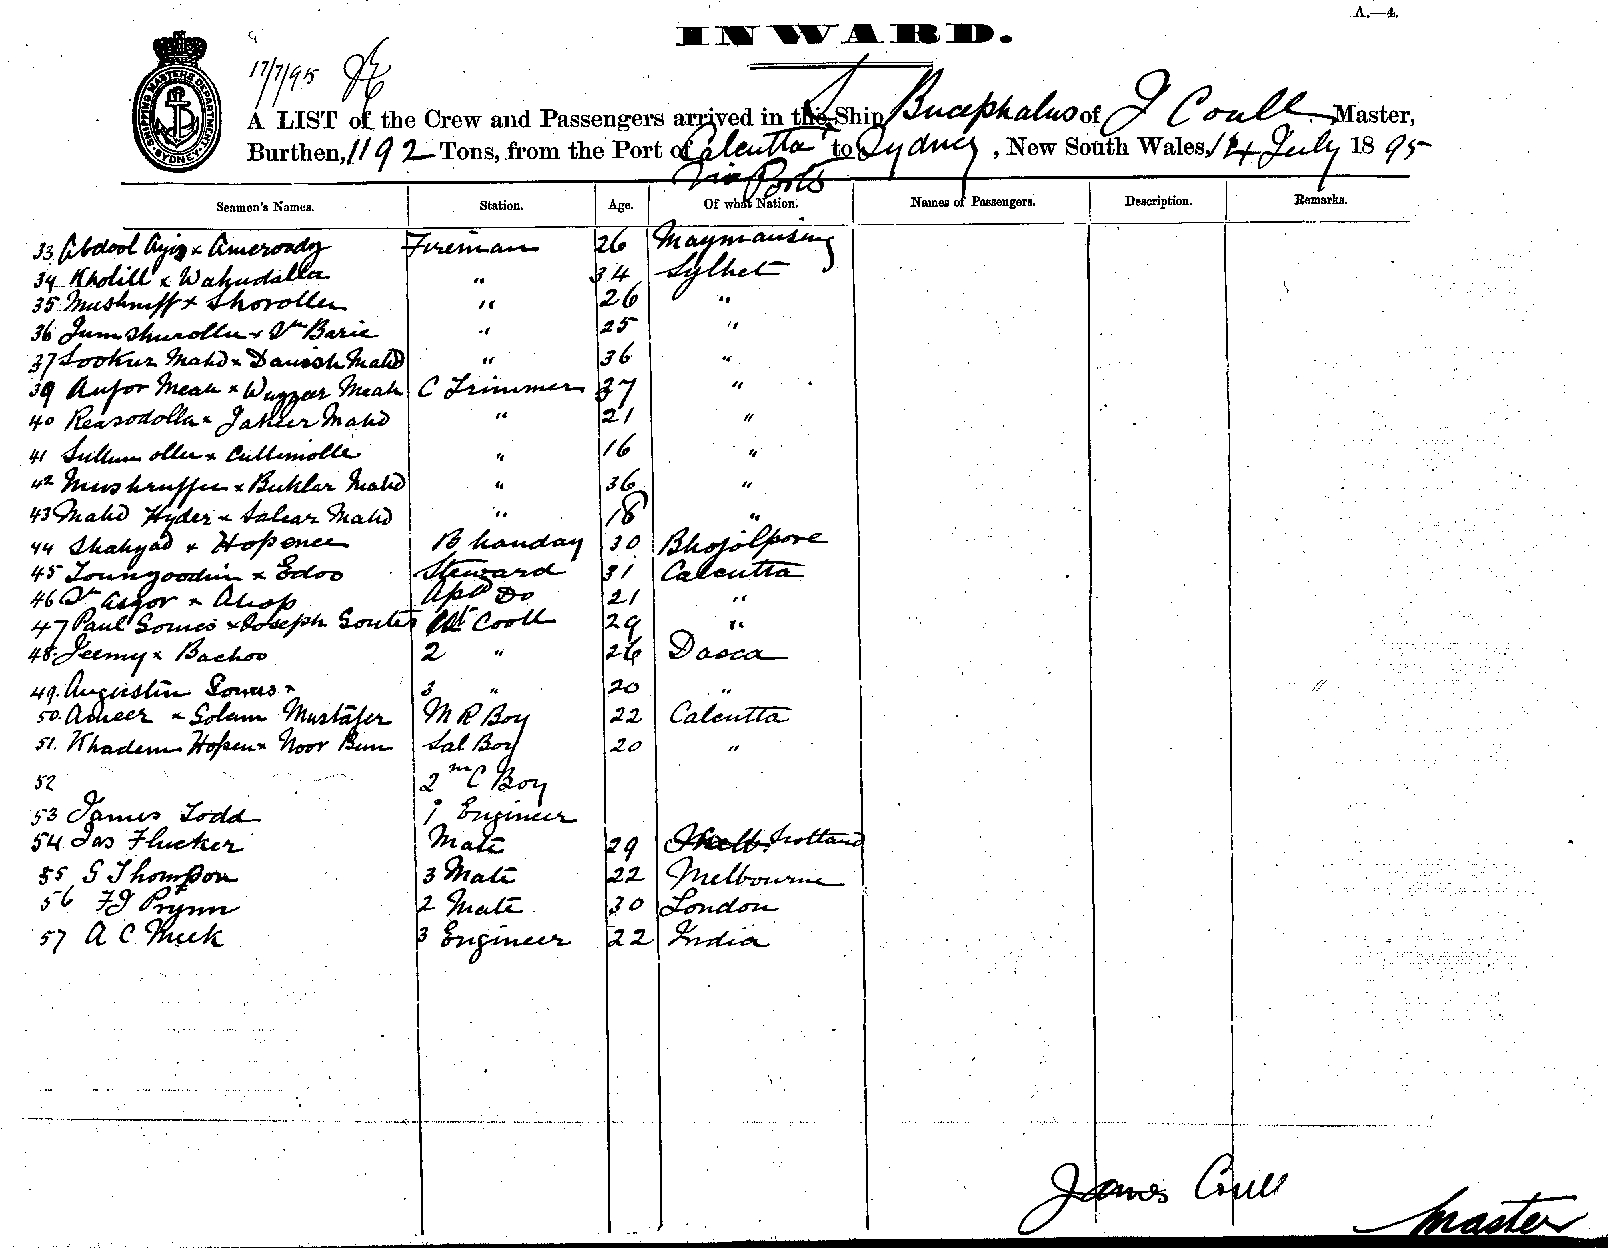 A.—4.
INWARD.
17/7/95
A LIST of the Crew and Passengers arrived in the Ship Bucephalus of J Coull Master,
Burthen, 1192 Tons, from the Port of Calcutta to Sydney, New South Wales, 14 July 1895
Via Ports
Seamen's Names. Station. Age. Of what Nation. Names of Passengers. Description. Remarks.
33 Abdool Ajis x Ameroody Fireman 26 Maymansing
34 Kholill x Wahudalla " 34 Sylhet
35 Mushruff x Shorolla " 26 "
36 Jumshurolla x Barie " 25 "
37 Sookur Mahd x Danish Mahd " 36 "
39 Aufor Meah x Wuzzeer Meah C Trimmer 37 "
40 Reasodolla x Jaheer Mahd " 21 "
41 " 16 "
42 Mushruffu x Buktar Mahd " 36 "
43 Mahd Hyder x Mahd " 18 "
44 Shahzad x Hopence Bhanday 30 Bhojolpore
45 x Edoo Steward 31 Calcutta
46 Asgor x Ahop Do 21 "
47 Paul Gomes x Joseph 1st Cook 29 "
48 Jeemy x Bachoo 2 " 26 Dacca
49. Augustin Gomes x 3 " 20 "
50. Ameer x Golam Mustafer M R Boy 22 Calcutta
51. Khadem Hopen x Noor Bun Sal Boy 20 "
52 2nd C Boy
53 James Todd 1 Engineer
54. Jas Flucker Mate 29 Scotland
55 G Thompson 3 Mate 22 Melbourne
56 F J Prynn 2 Mate 30 London
57 A C Meek 3 Engineer 22 India
"
James Coull
Master